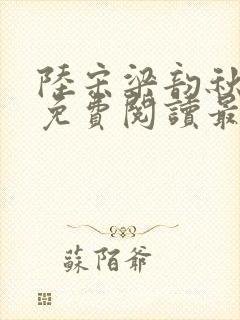 陸宗梁韵秋
免費閱讀最
蘇陌爺